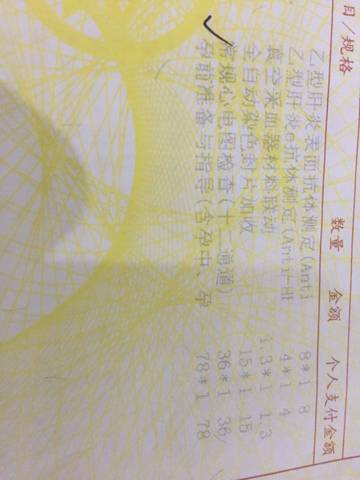 目/规格 数量 金额 个人支付金额
乙型肝炎表面抗体测定(Anti 8*1 8
乙型肝炎e抗体测定(Anti-H 4*1 4
真空采血器材料联动 1.3*1 1.3
全自动染色封片加收 15*1 15
常规心电图检查(十二通道) 36*1 36
孕前准备与指导(含孕中、孕 78*1 78